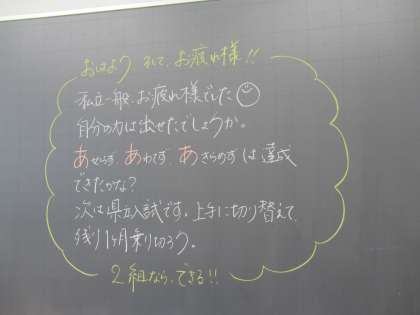 おはよう そして、お疲れ様!!
私立一般、お疲れ様でした
自分の力は出せたでしょうか。
あせらず、あわてず、あきらめずは達成
できたかな?
次は県立入試です。上手に切り替えて、
残り1ヶ月乗り切ろう。
2組なら、できる!!